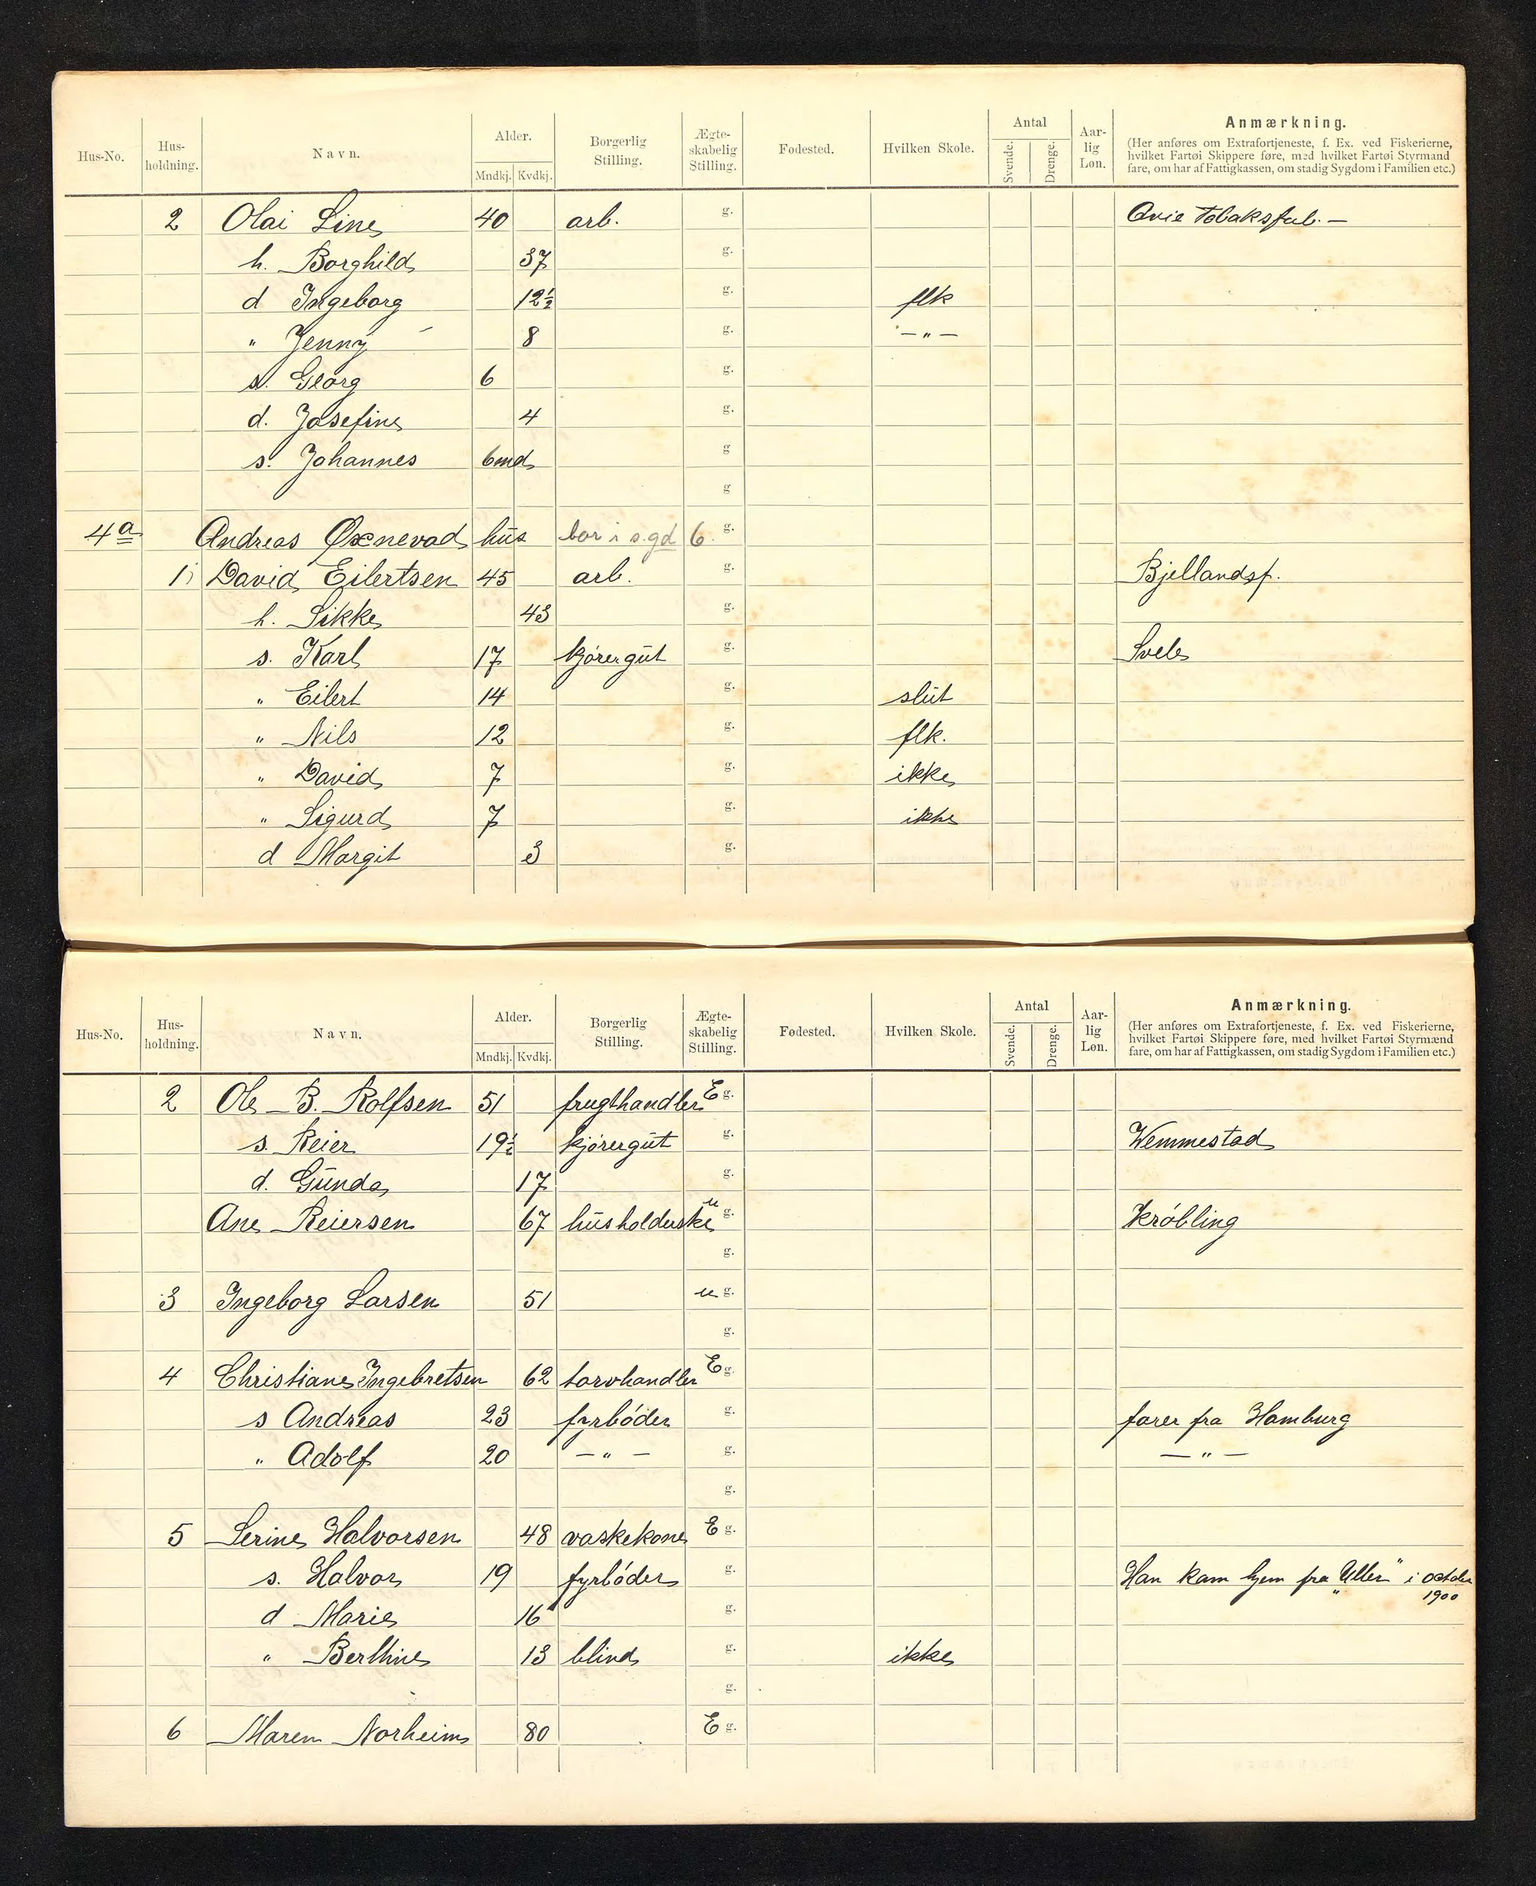 Hus-No. Hus-holdning. Navn. Alder. Mndkj. Kvdkj. Borgerlig Stilling. Ægte-skabelig Stilling. Fødested. Hvilken Skole. Antal Svende. Drenge. Aar-lig Løn. Anmærkning.
(Her anføres om Extrafortjeneste, f. Ex. ved Fiskerierne,
hvilket Fartøi Skippere føre, med hvilket Fartøi Styrmænd
fare, om har af Fattigkassen, om stadig Sygdom i Familien etc.)
2 Olai Line 40 arb. g. Avie Tobaksfab. —
h. Borghild 37 g.
d Ingeborg 12½ g. flk
" Jenny 8 g. — " —
s. Georg 6 g.
d. Josefine 4 g.
s. Johannes 6 md g.
g.
4a Andreas Øxnevad hus bor i s.gd 6. g.
1 David Eilertsen 45 arb. g. Bjellandsf.
h. Sikke 43
s. Karl 17 kjørergut g. Svele
" Eilert 14 g. slut
" Nils 12 g. flk.
" David 7 g. ikke
" Sigurd 7 g. ikke
d Margit 3 g.
Hus-No. Hus-holdning. Navn. Alder. Mndkj. Kvdkj. Borgerlig Stilling. Ægte-skabelig Stilling. Fødested. Hvilken Skole. Antal Svende. Drenge. Aar-lig Løn. Anmærkning.
(Her anføres om Extrafortjeneste, f. Ex. ved Fiskerierne,
hvilket Fartøi Skippere føre, med hvilket Fartøi Styrmænd
fare, om har af Fattigkassen, om stadig Sygdom i Familien etc.)
2 Ole B. Rolfsen 51 frugthandler E g.
s. Reier 19½ kjørergut g. Wemmestad
d. Gunda 17 g.
Ane Reiersen 67 husholderske u g. Krøbling
g.
3 Ingeborg Larsen 51 u g.
g.
4 Christiane Ingebretsen 62 torvhandler E g.
s Andreas 23 fyrbøder g. farer fra Hamburg
" Adolf 20 — " — g. — " —
g.
5 Serine Halvorsen 48 vaskekone E g.
s. Halvor 19 fyrbøder g. Han kam hjem fra "Uller" i october 1900
d Marie 16 g.
" Berthine 13 blind g. ikke
g.
6 Maren Norheim 80 E g.